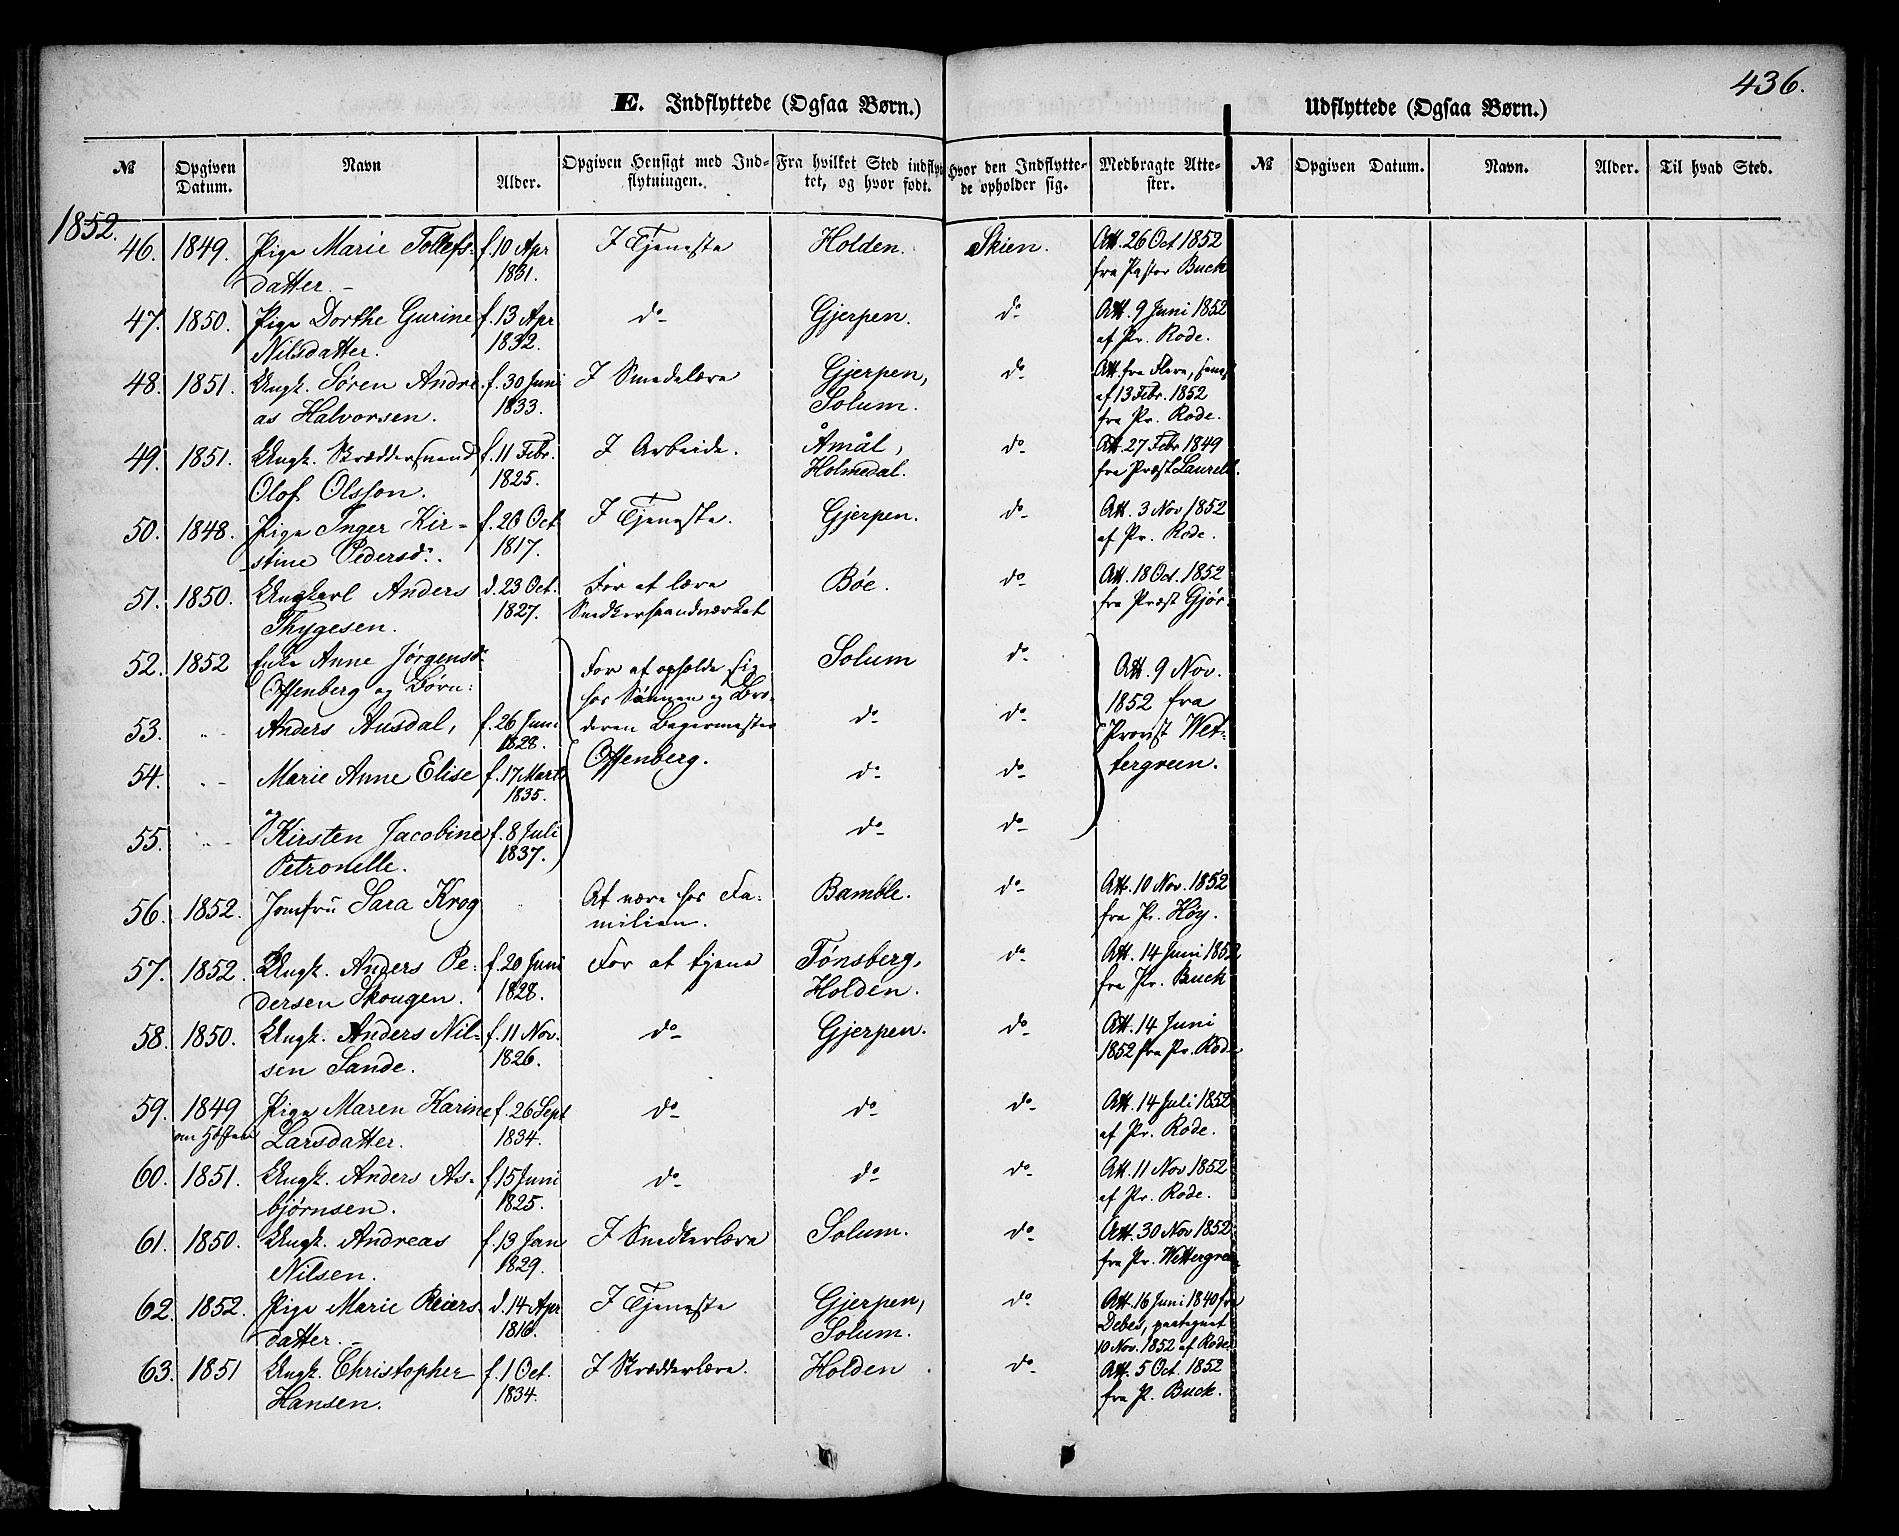 436.
E. Indflyttede (Ogsaa Børn.)
Udflyttede (Ogsaa Børn.)
№ Opgiven Datum. Navn Alder. Opgiven Hensigt med Indflytningen. Fra hvilket Sted indflyttet, og hvor født. Hvor den Indflyttede opholder sig. Medbragte Attester. № Opgiven Datum. Navn. Alder. Til hvad Sted.
1852.
46. 1849. Pige Marie Tollefs- f. 10 Apr I Tjeneste Holden. Skien. Att. 26 Oct 1852
datter. – 1831. fra Pastor Buch
47. 1850. Pige Dorthe Gurine f. 13 Apr do Gjerpen. do Att. 9 Juni 1852
Nilsdatter. 1832. af Pr. Rode.
48. 1851. Ungk. Søren Andre- f. 30 Juni I Smedelære Gjerpen, do Att. fra Flere, senest
as Halvorsen. 1833. Solum. af 13 Febr. 1852
fra Pr. Rode.
49. 1851. Ungk. Skræddersvend f. 11 Febr. I Arbeide. Åmål, do Att. 27 Febr 1849
Olof Olsson. 1825. Holmedal. fra Præst Laurell.
50. 1848. Pige Inger Kir- f. 20 Oct I Tjeneste. Gjerpen. do Att. 3 Nov 1852
stine Pedersd. 1817. af Pr. Rode.
51. 1850. Ungkarl Anders d. 23 Oct. For at lære Bøe. do Att. 18 Oct. 1852
Thygesen. 1827. Snedkerhaandværket fra Præst Gjør.
52. 1852 Enke Anne Jørgensd. For at opholde sig Solum do Att. 9 Nov.
Offenberg og Børn: hos Sønnen og Bro- 1852 fra
53. " - Anders Ausdal, f. 26 Juni deren Bagermester do do Provst Wet-
1828.
54. " - Marie Anne Elise f. 17 Marts Offenberg. do do tergreen.
1835.
55. " - og Kirsten Jacobine f. 8 Juli do do
Petronelle. 1837.
56. 1852. Jomfru Sara Krog " At være hos Fa- Bamble. do Att. 10 Nov. 1852
milien. fra Pr. Høy.
57. 1852. Ungk. Anders Pe- f. 20 Juni For at tjene Tønsberg, do Att. 14 Juni 1852
dersen Skougen. 1828. Holden. fra Pr. Buch
58. 1850. Ungk. Anders Nil- f. 11 Nov. do Gjerpen. do Att. 14 Juni
sen Sande. 1826. 1852 fra Pr. Rode
59. 1849 Pige Maren Karine f. 26 Sept do do do Att. 14 Juli 1852
om Høsten Larsdatter. 1834. af Pr. Rode.
60. 1851. Ungk. Anders As- f. 15 Juni do do do Att. 11 Nov 1852
bjørnsen. 1825. af Pr. Rode.
61. 1850. Ungk. Andreas f. 13 Jan I Snedkerlære Solum. do Att. 30 Nov 1852
Nilsen. 1829. fra Pr. Wettergreen
62. 1852. Pige Marie Reiers- d. 14 Apr I Tjeneste Gjerpen, do Att. 16 Juni 1840 fra
datter. – 1816. Solum. Debes, paategnet
10 Nov. 1852 af Rode
63. 1851 Ungk. Christopher f. 1 Oct. I Skrædderlære. Holden . do Att. 5 Oct. 1852
Hansen. 1834. fra P. Buch.